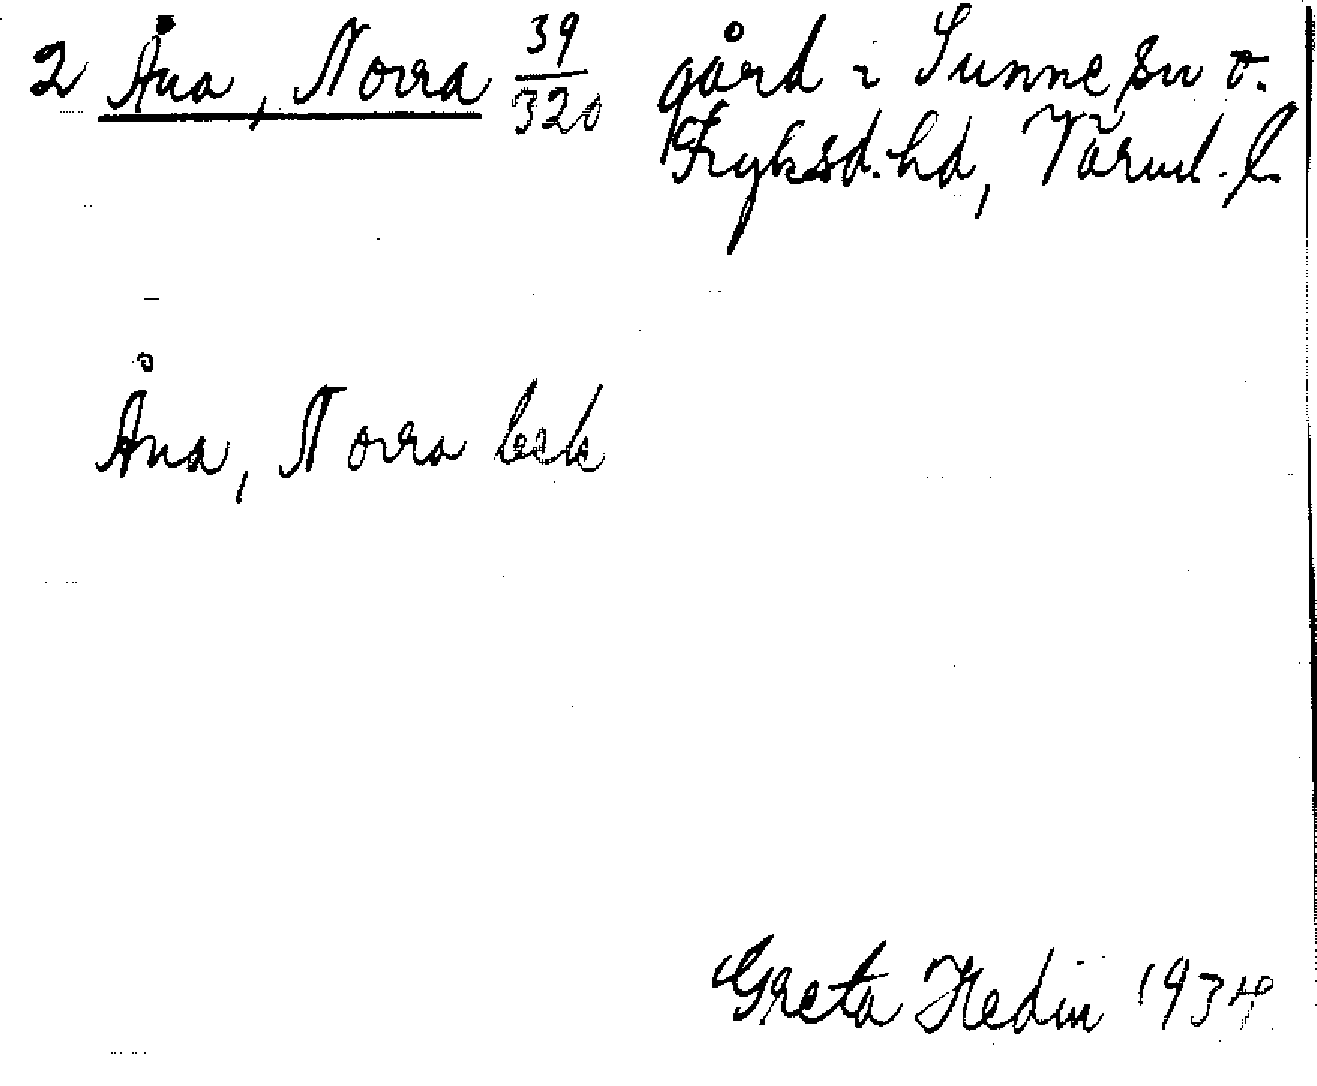 2 Åna, Norra 39/320 gård i Sunne sn o.
Fryksd. hd, Värml. l.
Åna, Norra bek
Greta Hedin 1934